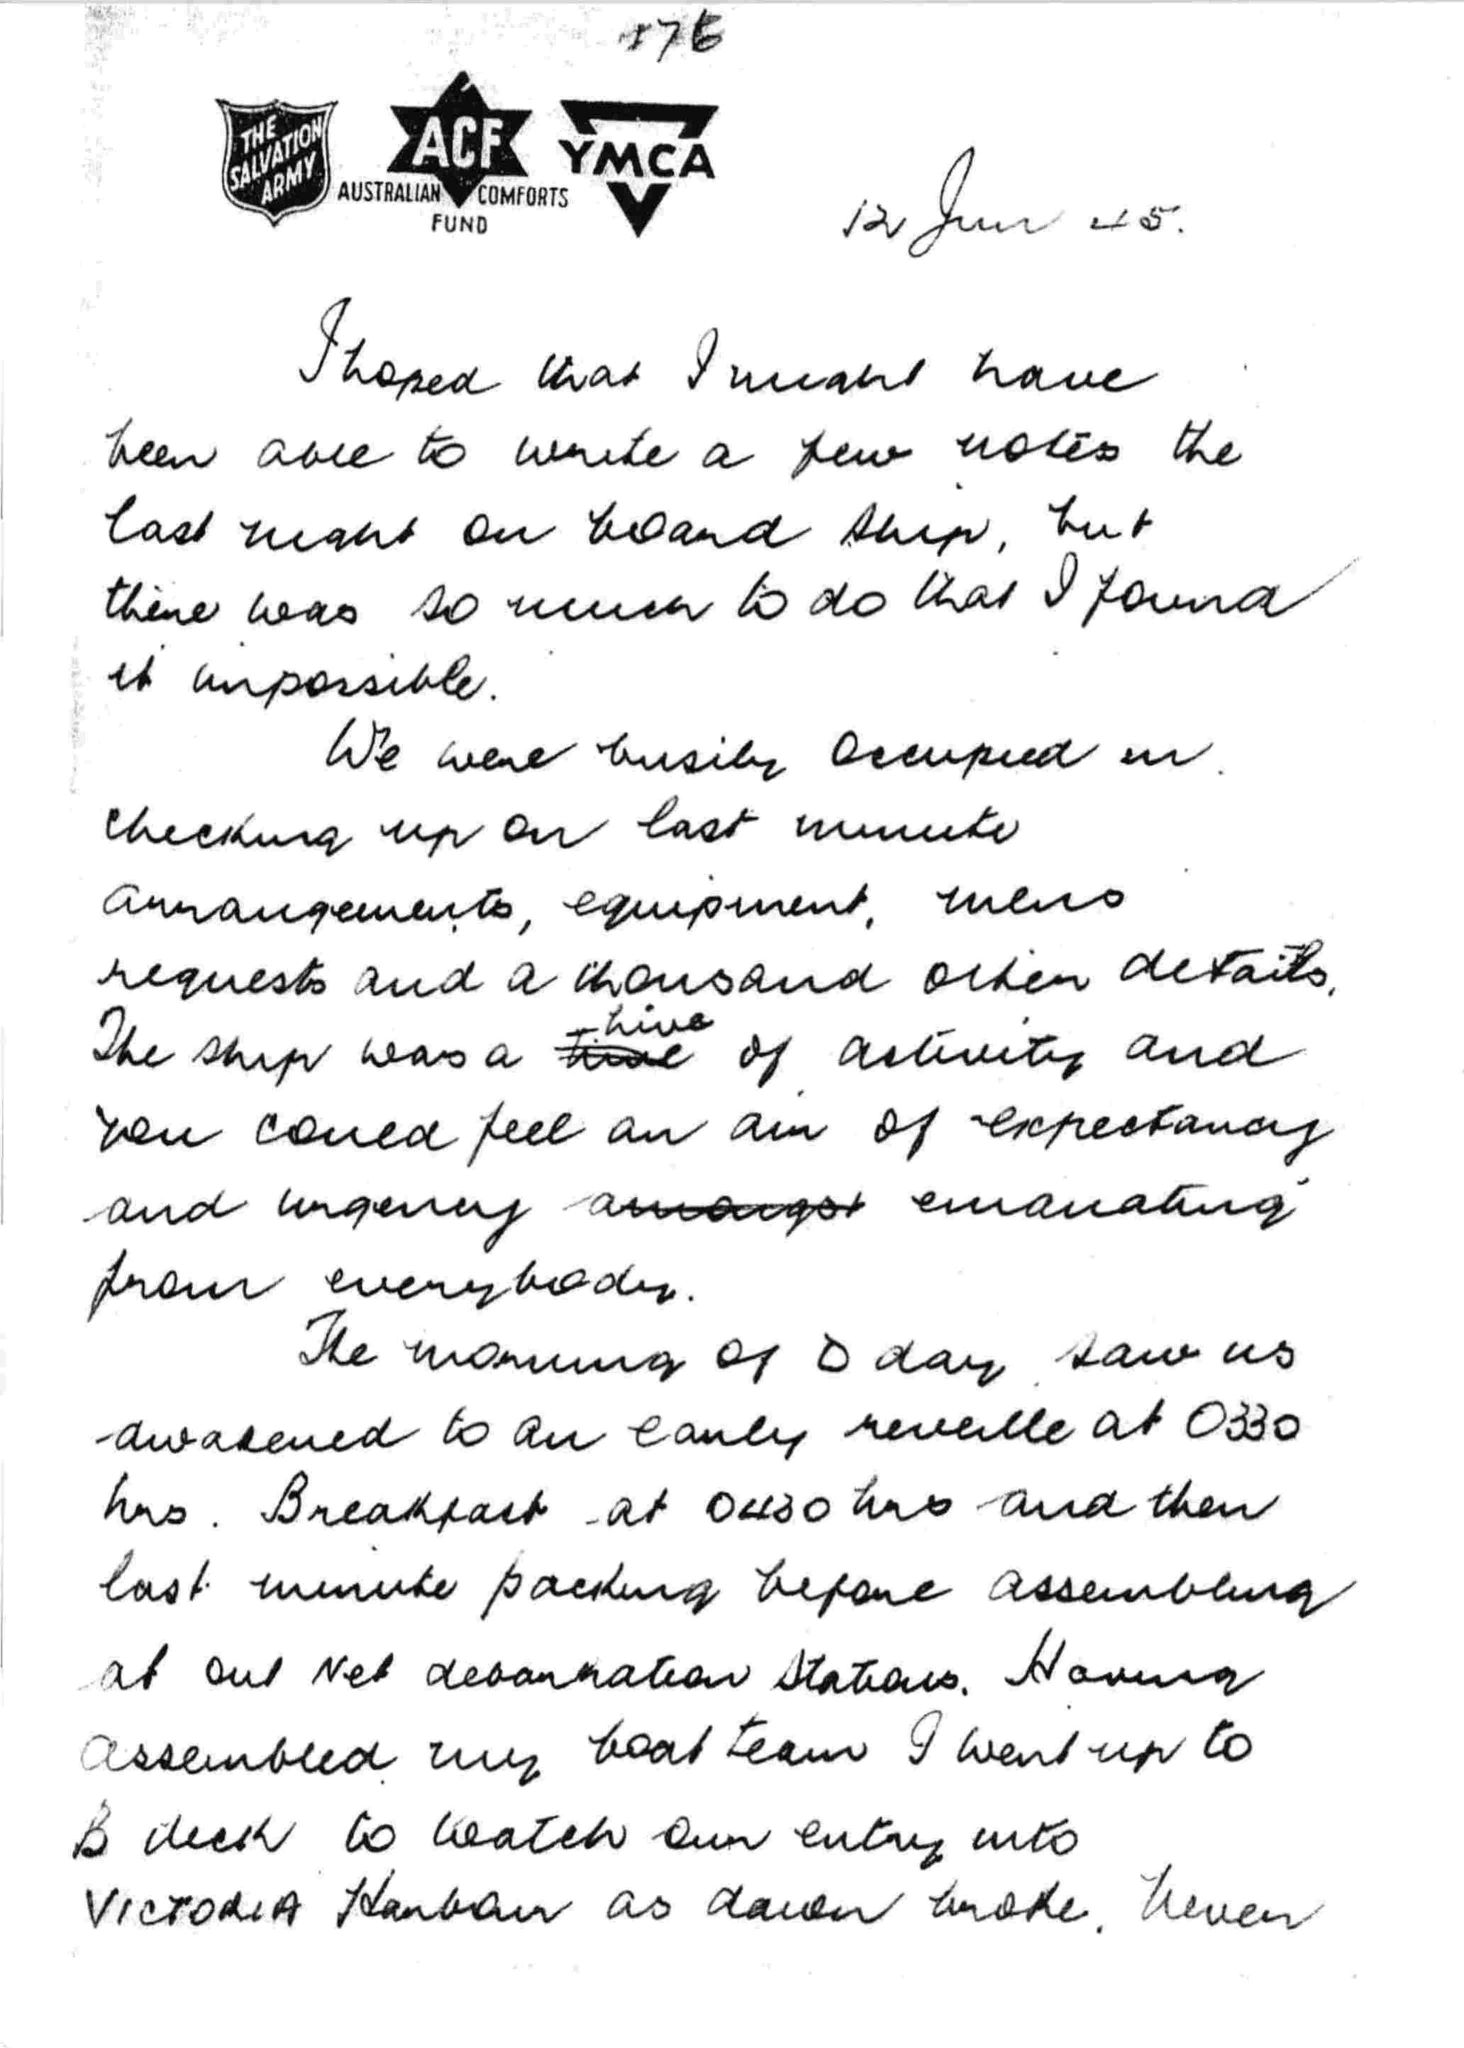 176
THE
SALVATION
ARMY
ACF
AUSTRALIAN COMFORTS
FUND
YMCA
12 Jun 45.
I hoped that I might have
been able to write a few notes the
last night on board ship, but
there was so much to do that I found
it impossible.
We were busily occupied in
checking up on last minute
arrangements, equipment, mens
requests and a thousand other details.
hive
The ship was a hive of activity and
you could feel an air of expectancy
and urgency amongst emanating
from everybody.
The morning of D day saw us
awakened to an early reveille at 0330
hrs. Breakfast at 0430 hrs and then
last minute packing before assembling
at our Net debarkation stations. Having
assembled my boat team I went up to
B deck to watch our entry into
VICTORIA Harbour as dawn broke. Never